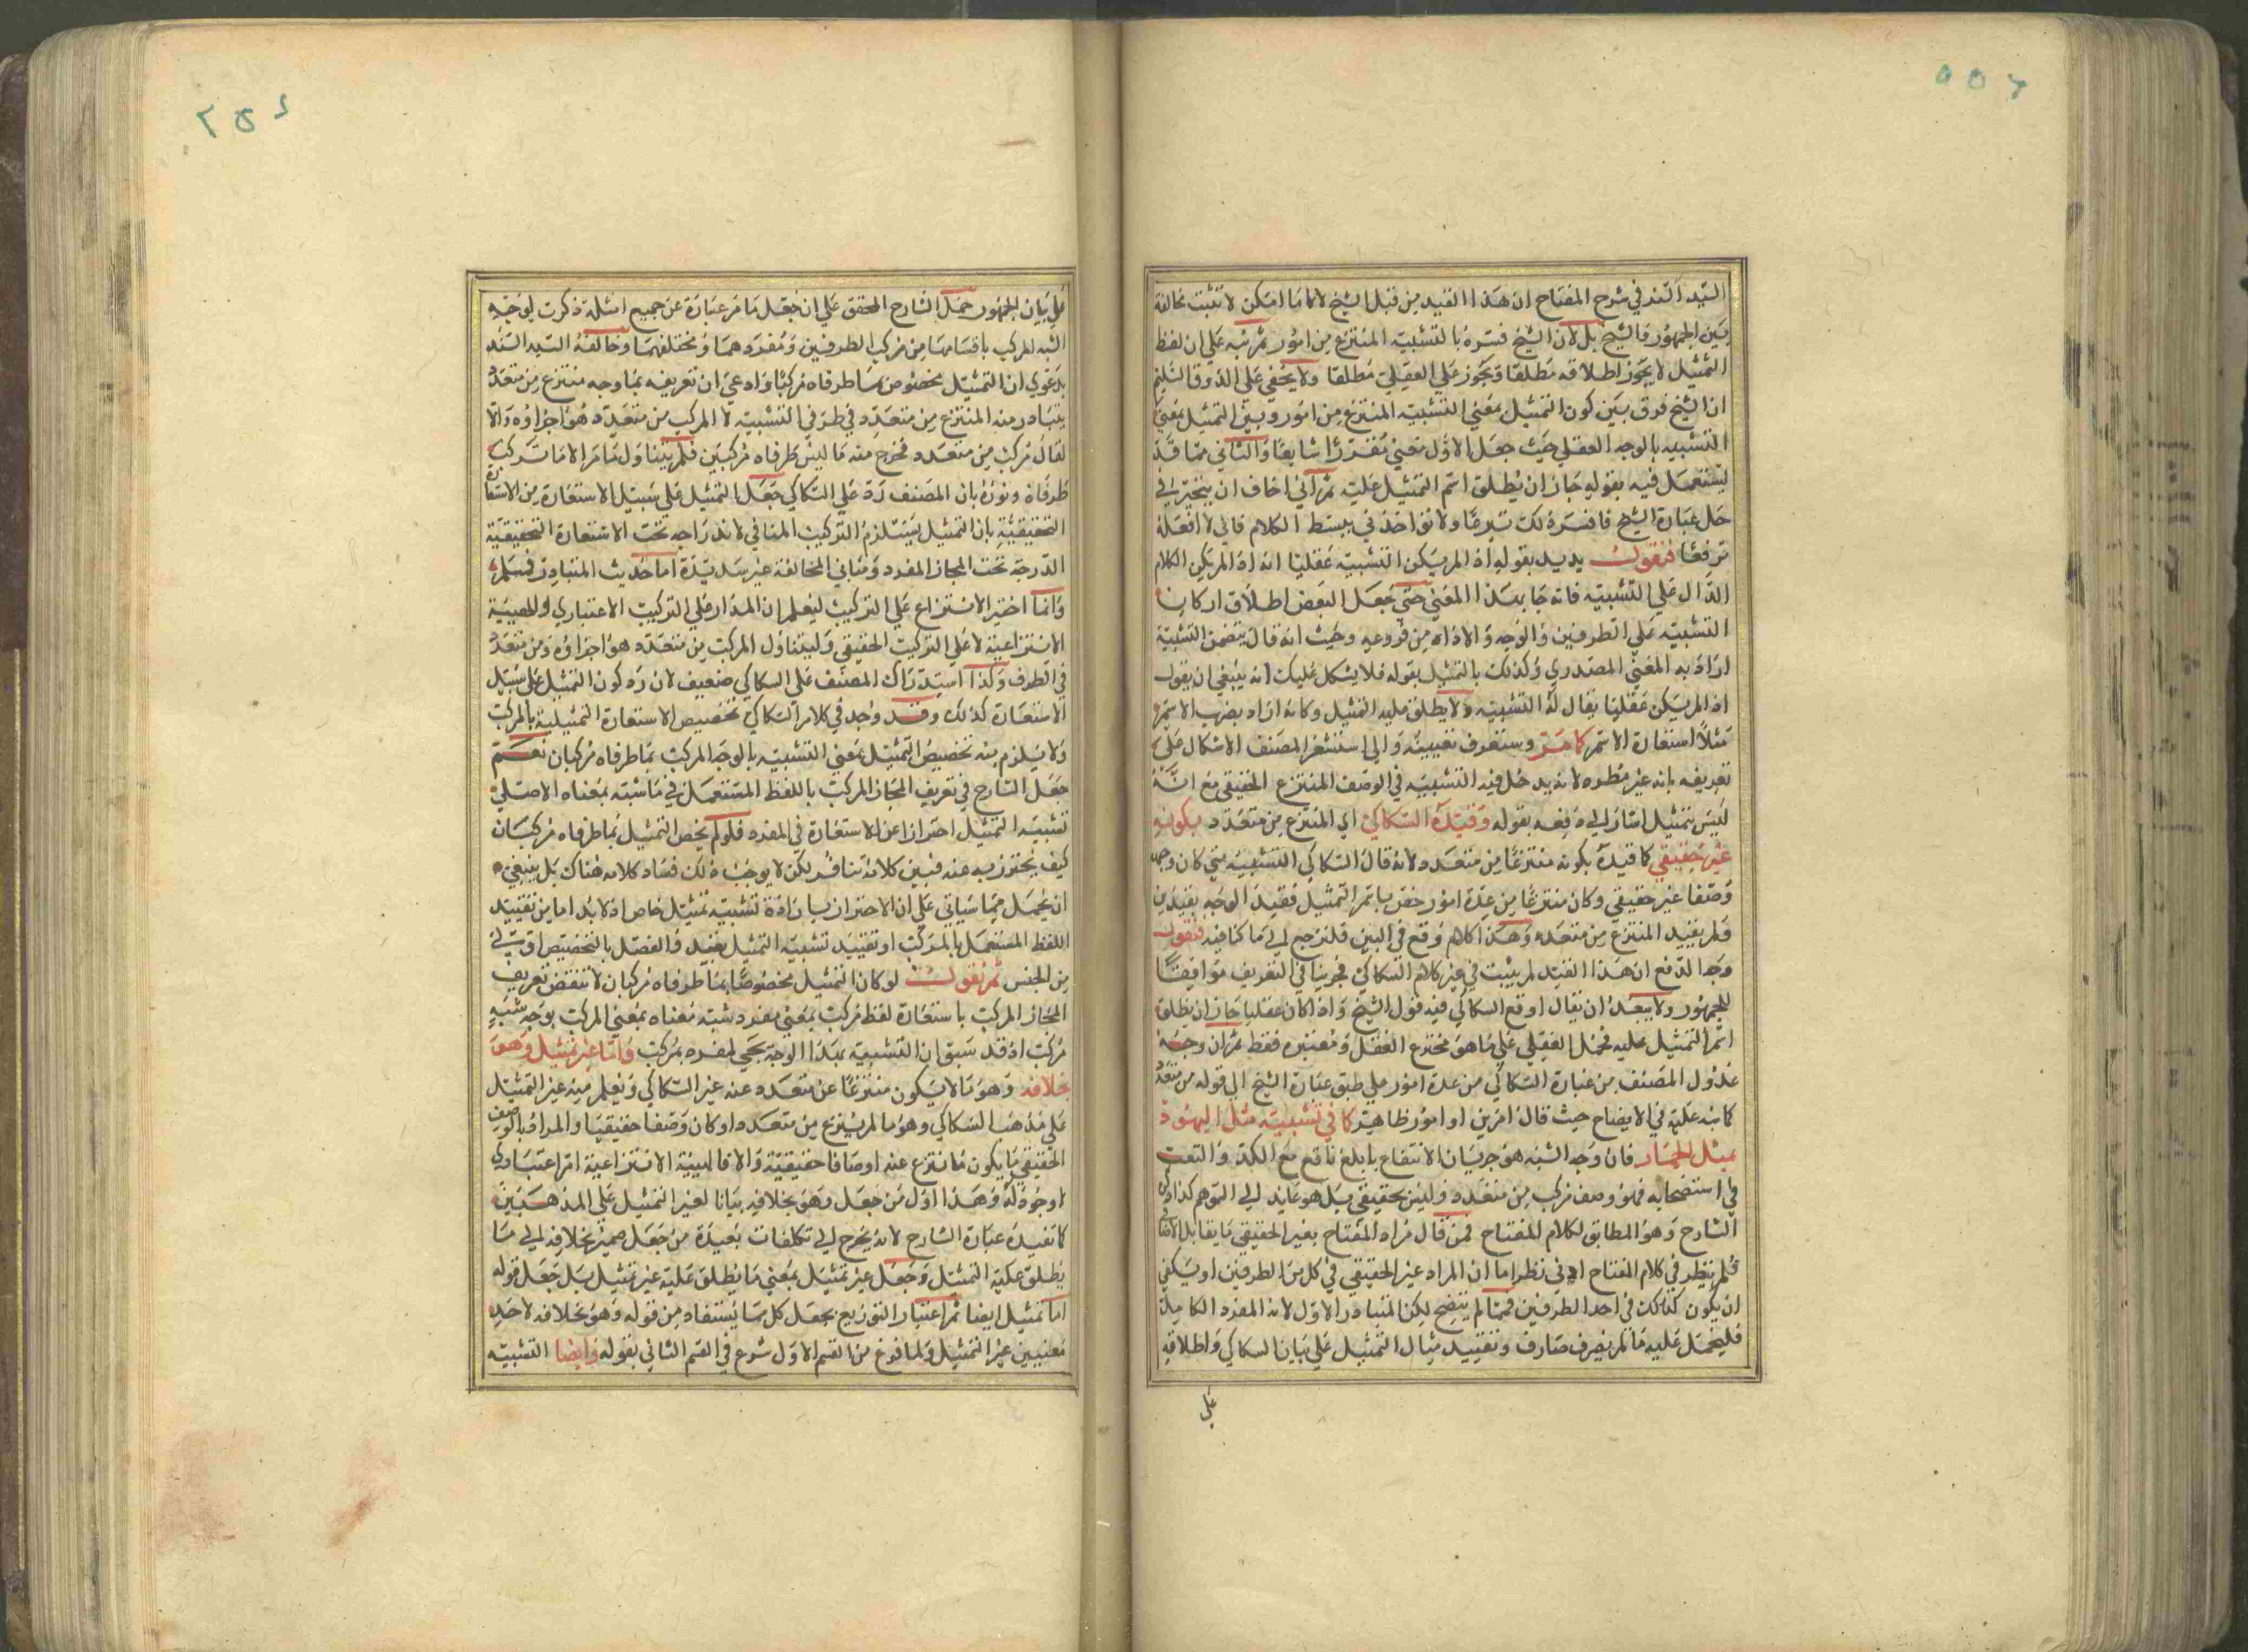 السيد السند في شرح المفتاح ان هذا القيد من قبل الشيخ لانا ما امكن لا تثبت مخالفة
بين الجمهور والشيخ بل لان الشيخ فسره بالتشبيه المنتزع من امور ثم نبه على ان لفظ
التمثيل لا يجوز اطلاقه مطلقا ويجوز على العقلي مطلقا ولا يخفى على الذوق السليم
ان الشيخ فرق بين كون التمثيل بمعنى التشبيه المنتزع من امور وبين التمثيل بمعنى
التشبيه بالوجه العقلي حيث جعل الاول معنى متقررا شايعا والثاني مما قد
يستعمل فيه بقوله جاز ان يطلق اسم التمثيل عليه ثم اني اخاف ان يتحير في
حل عبارة الشيخ فافسره لك تبرعا ولا تؤاخذني ببسط الكلام فاني لا افعله
ترفعا فنقول يريد بقوله اذ المريكن التشبيه عقليا انه اذا لم يكن الكلام
الدال على التشبيه فانه جا بهذا المعنى حتى جعل البعض اطلاق اركان
التشبيه على الطرفين والوجه والاداه من فروعه وحيث انه قال يتضمن التشبيه
اراد به المعنى المصدري وكذلك بالتمثيل بقوله فلا يشكل عليك انه ينبغي ان يقول
اذا لم يكن عقليا يقال له التشبيه ولا يطلق عليه التمثيل وكانه اراد بضرب الاسم
مثلا استعارة الاسم كما مر وستعرف تعيينه والى استشعر المصنف الاشكال على
تعريفه بانه غير مطرد لانه يدخل فيه التشبيه في الوصف المنتزع الحقيقي مع انه
ليس بتمثيل اشار الى دفعه بقوله وقيده السكاكي اي المنتزع من متعدد بكونه
غير حقيقي كما قيده بكونه منتزعا من متعدد لانه قال السكاكي التشبيه متى كان وجهه
وصفا غير حقيقي وكان منتزعا من عدة امور خص باسم التمثيل فقيد الوجه بقيدين
ولم يقيد المنتزع من متعدد وهذا كلام وقع في البين فلنرجع الى ما كنا فيه فنقول
وجه الدفع ان هذا القيد لم يثبت في غير كلام السكاكي فجرينا في التعريف موافقا
للجمهور ولا يبعد ان يقال اوقع السكاكي فيه قول الشيخ واذا كان عقليا جاز ان يطلق
اسم التمثيل عليه فحمل العقلي على ما هو مخترع العقل ومعتبره فقط ثم ان وجه
عدول المصنف من عبارة السكاكي من عدة امور على طبق عبارة الشيخ الى قوله من متعدد
كما نبه عليه في الايضاح حيث قال امرين او امور ظاهر كما في تشبيه مثل اليهود
بمثل الحمار فان وجه الشبه هو حرمان الانتفاع بابلغ نافع مع الكد والتعب
في استصحابه فهو وصف مركب من متعدد وليس بحقيقي بل هو عايد الى التوهم كذا ذكره
الشارح وهو المطابق لكلام المفتاح فمن قال مراد المفتاح بغير الحقيقي ما يقابل
فلم ينظر في كلام المفتاح ادنى نظر اما ان المراد غير الحقيقي في كل من الطرفين او يكفي
ان يكون كذلك في احد الطرفين فمما لم يتضح لكن المتبادر الاول لانه المفرد الكامل
فليحمل عليه ما لم يصرف صارف وتقييد مثال التمثيل على بيان السكاكي واطلاقه
على
على بيان الجمهور حمل الشارح المحقق على ان جعل ما مر عبارة عن جميع امثلة ذكرت لوجه
الشبه المركب باقسامها من مركب الطرفين ومفردهما ومختلفهما وخالفه السيد السند
بدعوى ان التمثيل مخصوص بما طرفاه مركبا وادعى ان تعريفه بما وجه منتزع من متعدد
يتبادر منه المنتزع من متعدد في طرفي التشبيه لا المركب من متعدد هو اجزاؤه والا
لقال مركب من متعدد فخرج منه ما ليس طرفاه مركبين فلم يتناول ما مر الا ما تركب
طرفاه ونوره بان المصنف رد على السكاكي جعل التمثيل على سبيل الاستعارة من الاستعارة
التحقيقية بان التمثيل يستلزم التركيب المنافي لاندراجه تحت الاستعارة التحقيقية
الدرجة تحت المجاز المفرد ومباني المخالفة غير سديدة اما حديث المتبادر فسلم
وانما اختير الانتزاع على التركيب ليعلم ان المدار على التركيب الاعتباري والهيئة
الانتزاعية لا على التركيب الحقيقي وليتناول المركب من متعدد هو اجزاؤه ومن متعدد
في الطرف وكذا استدراك المصنف على السكاكي ضعيف لان رد كون التمثيل على سبيل
الاستعارة كذلك وقد وجد في كلام السكاكي تخصيص الاستعارة التمثيلية بالمركب
ولا يلزم منه تخصيص التمثيل بمعنى التشبيه بالوجه المركب بما طرفاه مركبان نعم
جعل الشارح في تعريف المجاز المركب باللفظ المستعمل في ما شبه بمعناه الاصلي
تشبيه التمثيل احترازا عن الاستعارة في المفرد فلو لم يخص التمثيل بما طرفاه مركبان
كيف يحترز به عنه فبين كلاميه تنافر لكن لا يوجب ذلك فساد كلامه هناك بل ينبغي
ان يحمل فيما سياتي على ان الاحتراز بارادة تشبيه تمثيل خاص اذ لا بد اما من تقييد
اللفظ المستعمل بالمركب او تقييد تشبيه التمثيل بقيد والفصل بالتخصيص اولى
من الجنس ثم نقول لو كان التمثيل مخصوصا بما طرفاه مركبان لانتقض تعريف
المجاز المركب باستعارة لفظ مركب بمعنى مفرد شبه معناه بمعنى المركب بوجه شبه
مركب اذ قد سبق ان التشبيه بهذا الوجه يجي لمفرد بمركب واما غير تمثيل وهو
بخلافه وهو ما لا يكون منتزعا عن متعدد عند غير السكاكي ويعلم منه غير التمثيل
على مذهب السكاكي وهو ما لم ينتزع من متعدد او كان وصفا حقيقيا والمراد بالوصف
الحقيقي ما يكون ما انتزع عنه اوصافا حقيقية والا فالهيئة الانتزاعية امر اعتباري
لا وجود له وهذا اول من جعل وهو بخلافه بيانا لغير التمثيل على المذهبين
كما تفيده عبارة الشارح لانه يخرج الى تكلفات بعيدة من جعل ضمير بخلافه الى ما
يطلق عليه التمثيل وجعل غير تمثيل بمعنى ما يطلق عليه غير تمثيل بل جعل قوله
اما تمثيل ايضا ثم اعتبار التوزيع بجعل كل مما يستفاد من قوله وهو بخلافه لاحد
معنيين غير التمثيل ولما فرغ من القسم الاول شرع في القسم الثاني بقوله وايضا التشبيه